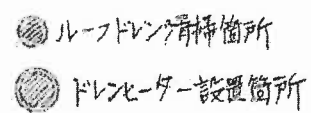 ルーフドレン清掃箇所
ドレンヒーター設置箇所